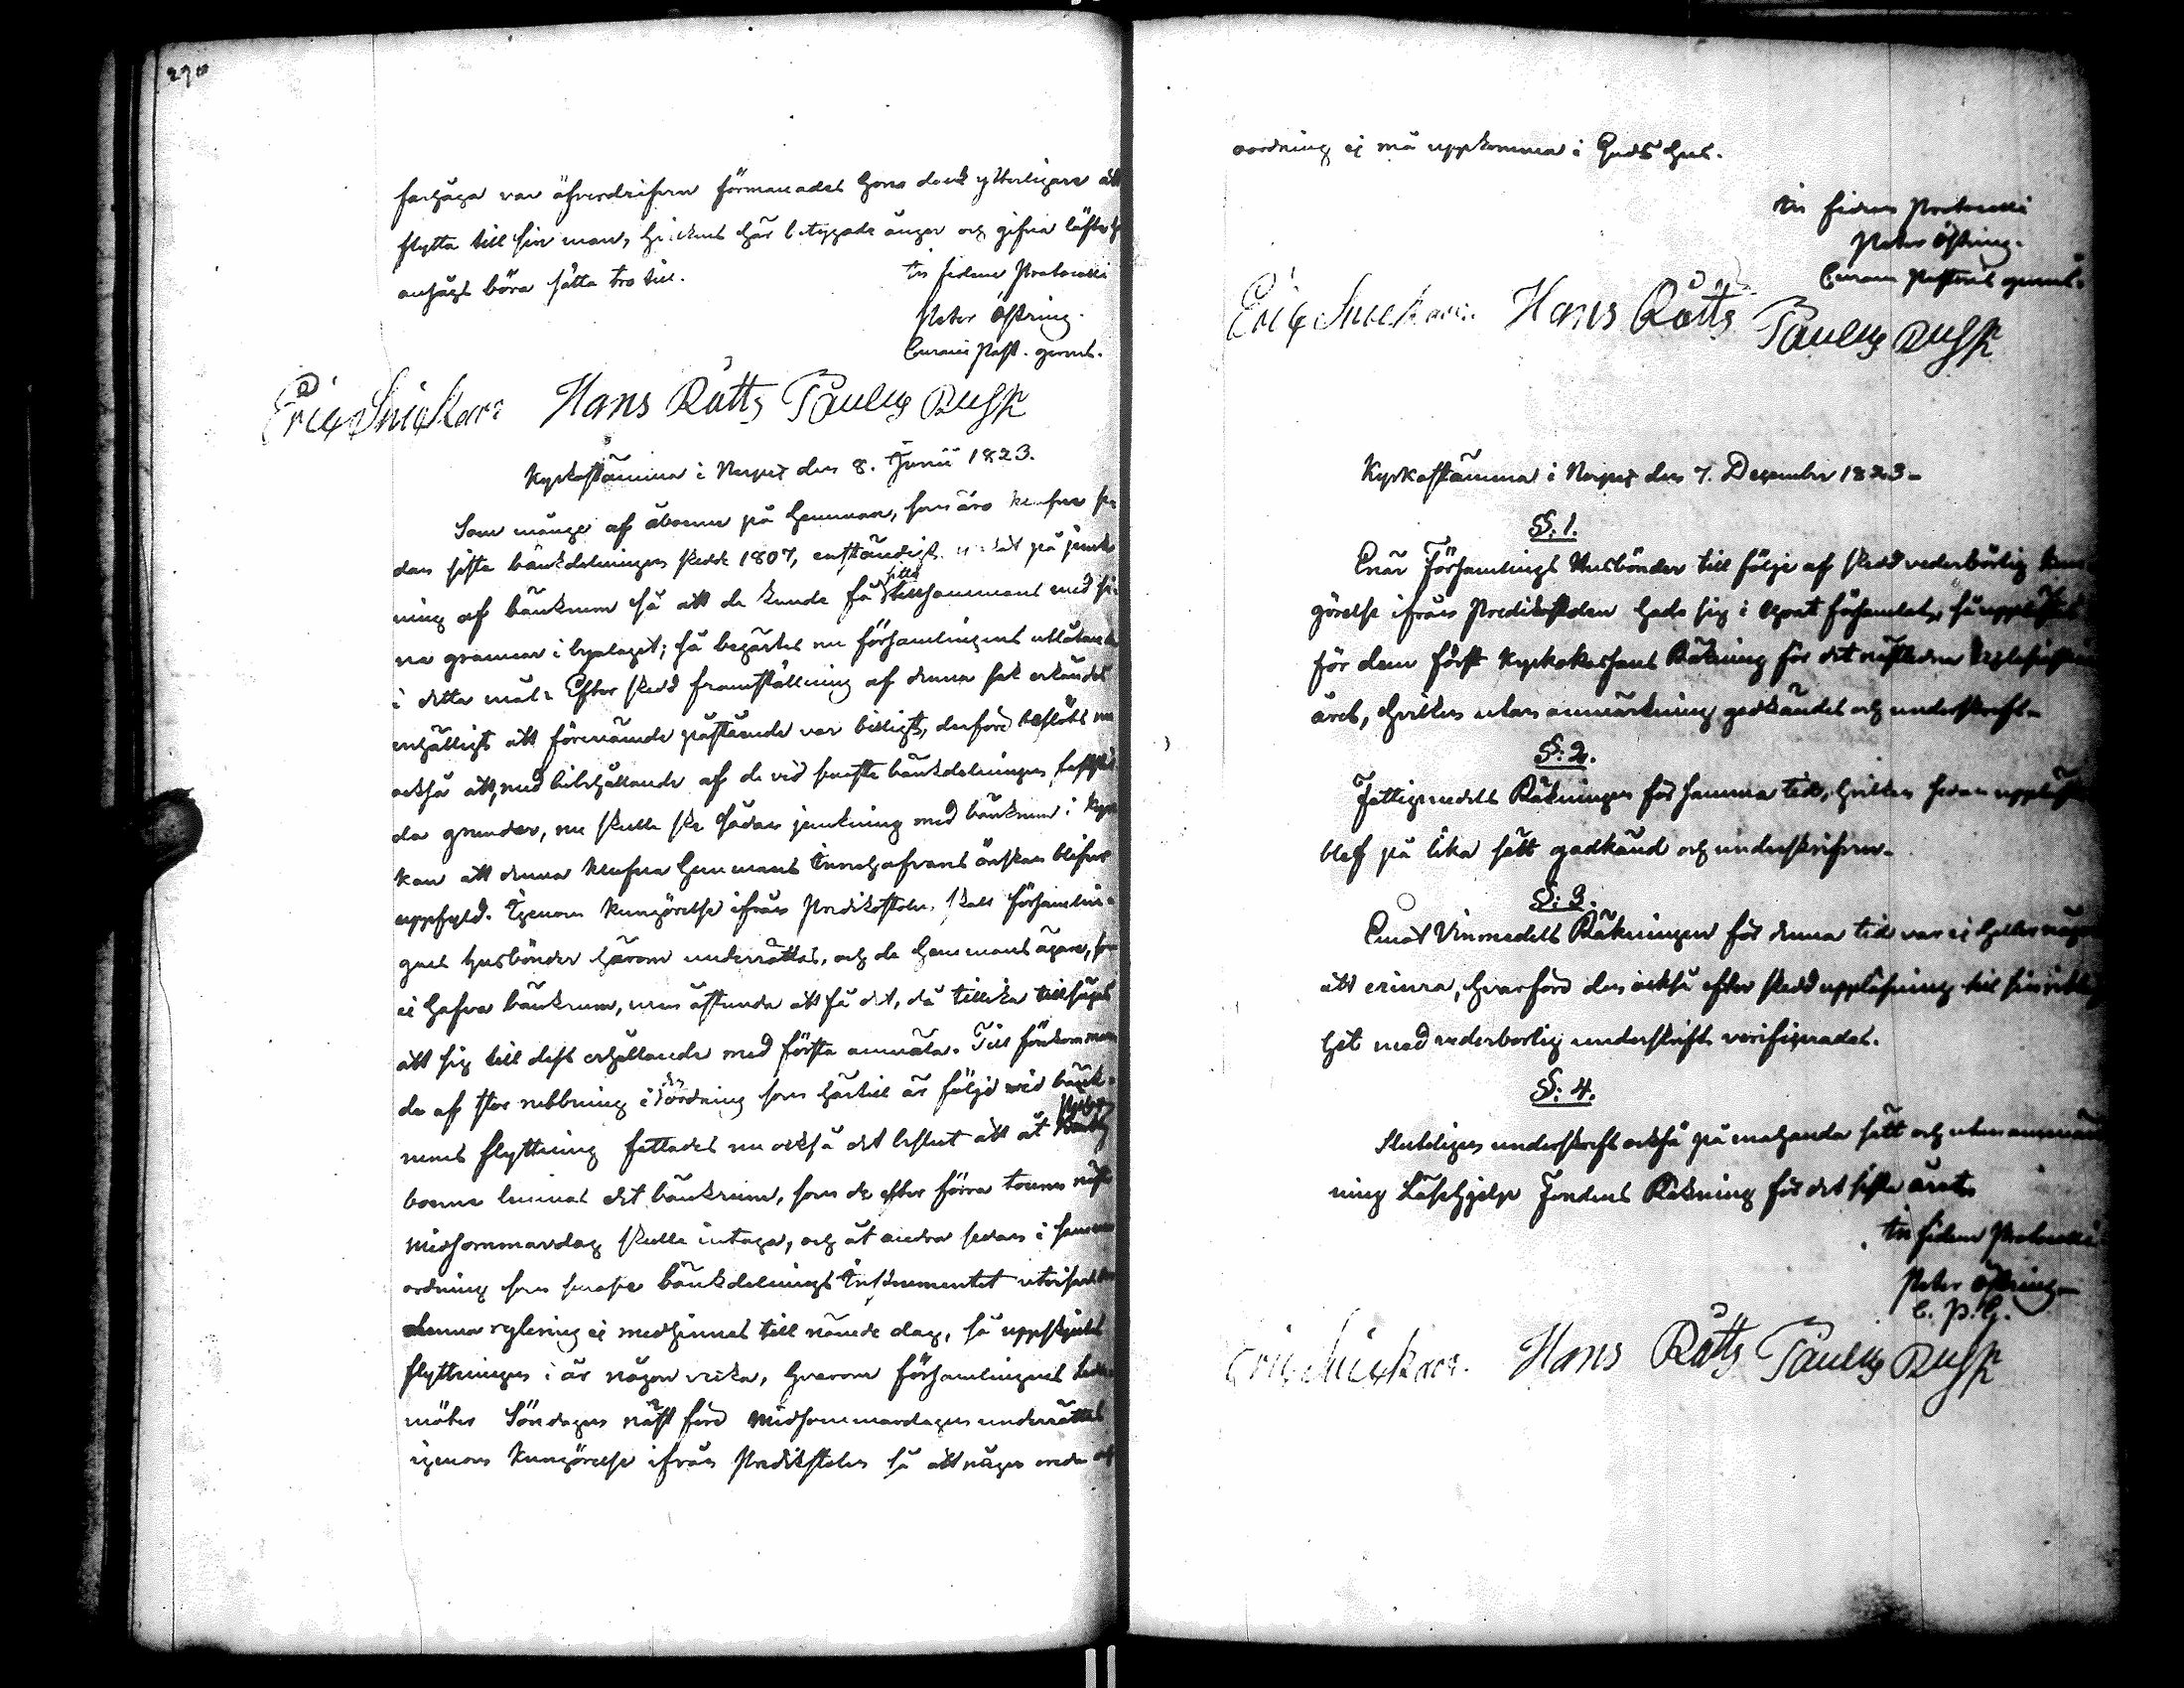 270
farhåga var öfverdrifven förmanades hon dock ytterligare att
flytta till sin man, hvilkens här betygade ånger och gifna löfte
ansågs böra sätta tro till.
In fidem Protocolli
Peter Östring.
Curam Past. gerens.
Eric Snickars Hans Rätts Paulus Busk
Kyrkostämma i Nerpes den 8. Junii 1823.
Som månge af åboerne på hemman, som äro klufne se
dan sista bänkdelningen skedde 1807, enständigt på jemk
ning af bänkrum så att de kunde få sitta tillsammans med si
na grannar i byalaget; så begärtes nu församlingens utlåtande
i detta mål. Efter skedd framställning af denna sak erkändes
enhälligt att förenämde påstående var billigt, derföre beslöts nu
också att, med bibehållande af de vid senaste bänkdelningen fastställ
da grunder, nu skulle ske sådan jemkning med bänkrum i kyr
kan att denna klufna hemmans Innehafvares önskan blifver
uppfyld. Igenom kungörelse ifrån Predikstolen skall församlin-
gens husbönder härom underrättas, och de hemmans ägare, som
ej hafva bänkrum, men åstunda att få det, då tillika tillsägas
att sig till dess erhållande med första anmäla. Till förekomman
de af stor rubbning i den ordning som härtill är följd vid bänk-
rums flyttning fattades nu också det beslut att åt
boerne lemnas det bänkrum, som de efter förra touren nästa
Midsommardag skulle intaga, och åt andra sedan i samma
ordning som senaste bänkdelnings Instrumentet utvisar.
denna reglering ej medhinnes till nämde dag, så uppskjutes
flyttningen i år någon vecka, hvarom församlingens Leda-
möter Söndagen näst före Midsommardagen underrättas
igenom Kungörelse ifrån Predikstolen så att någon oreda och
oordning ej må uppkomma i Guds hus.
In fidem Protocolli
Peter Östring.
Curam Pastoris gerens.
Eric Snickars. Hans Rätts Paulus Busk
Kyrkostämma i Nerpes den 7. December 1823.
§: 1.
Enär Församlings Husbönder till följe af skedd vederbörlig kun
görelse ifrån Predikstolen hade sig i Choret församlat, så upplästes
för dem först Kyrkokassans Räkning för det nästledne
året, hvilken utan anmärkning godkändes och underskrefs.
§: 2.
Fattigmedels Räkningen för samma tid, hvilken sedan upplästes
blef på lika sätt godkänd och underskrifven.
§: 3.
Emot Vinmedels Räkningen för denna tid var ej heller något
att erinra, hvarföre den också efter skedd uppläsning till sin riktig
het med vederbörlig underskrift verificerades.
§: 4.
Slutligen underskrefs också på enahanda sätt och utan anmärk
ning Läsehjelps Fondens Räkning för det sista året.
In fidem Protocolli
Peter Östring
C. P. G.
Eric Snickars. Hans Rätts Paulus Busk